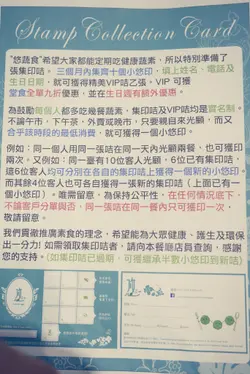 Stamp Collection Card
"悠蔬食"希望大家都能定期吃健康蔬素，所以特別準備了
張集印咭。三個月內集齊十個小悠印，填上姓名，電話及
生日日期，就可獲得精美VIP咭乙張，VIP 可獲
堂食全單九折優惠，並在生日週有額外優惠。
為鼓勵每個人都多吃幾餐蔬素，集印咭及VIP咭均是實名制。
不論午市、下午茶、外賣或晚市，只要親自來光顧，而又
合乎該時段的最低消費，就可獲得一個小悠印。
例如：同一個人用同一張咭在同一天內光顧兩餐，也可獲印
兩次。又例如：同一臺有10位客人光顧，6位已有集印咭，
這6位客人均可分別在各自的集印咭上獲得一個新的小悠印，
而其餘4位客人也可各自獲得一張新的集印咭（上面已有一
個小悠印）。唯需留意，為保持公平性，在任何情況底下，
不論客戶分單與否，同一張咭在同一餐內只可獲印一次，
敬請留意。
我們貫徹推廣素食的理念，希望能為大眾健康、護生及環保
出一分力！如需領取集印咭者，請向本餐廳店員查詢，感謝
您的支持。（如集印咭已過期，可獲繼承半數小悠印到新咭）